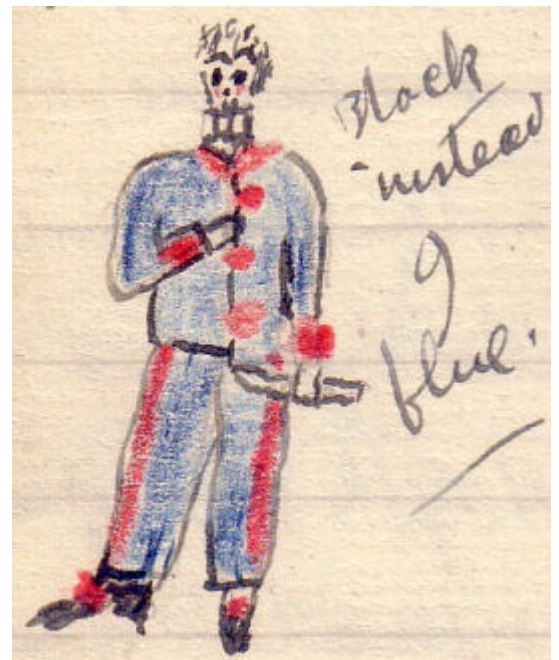 Black
instead
of
blue.